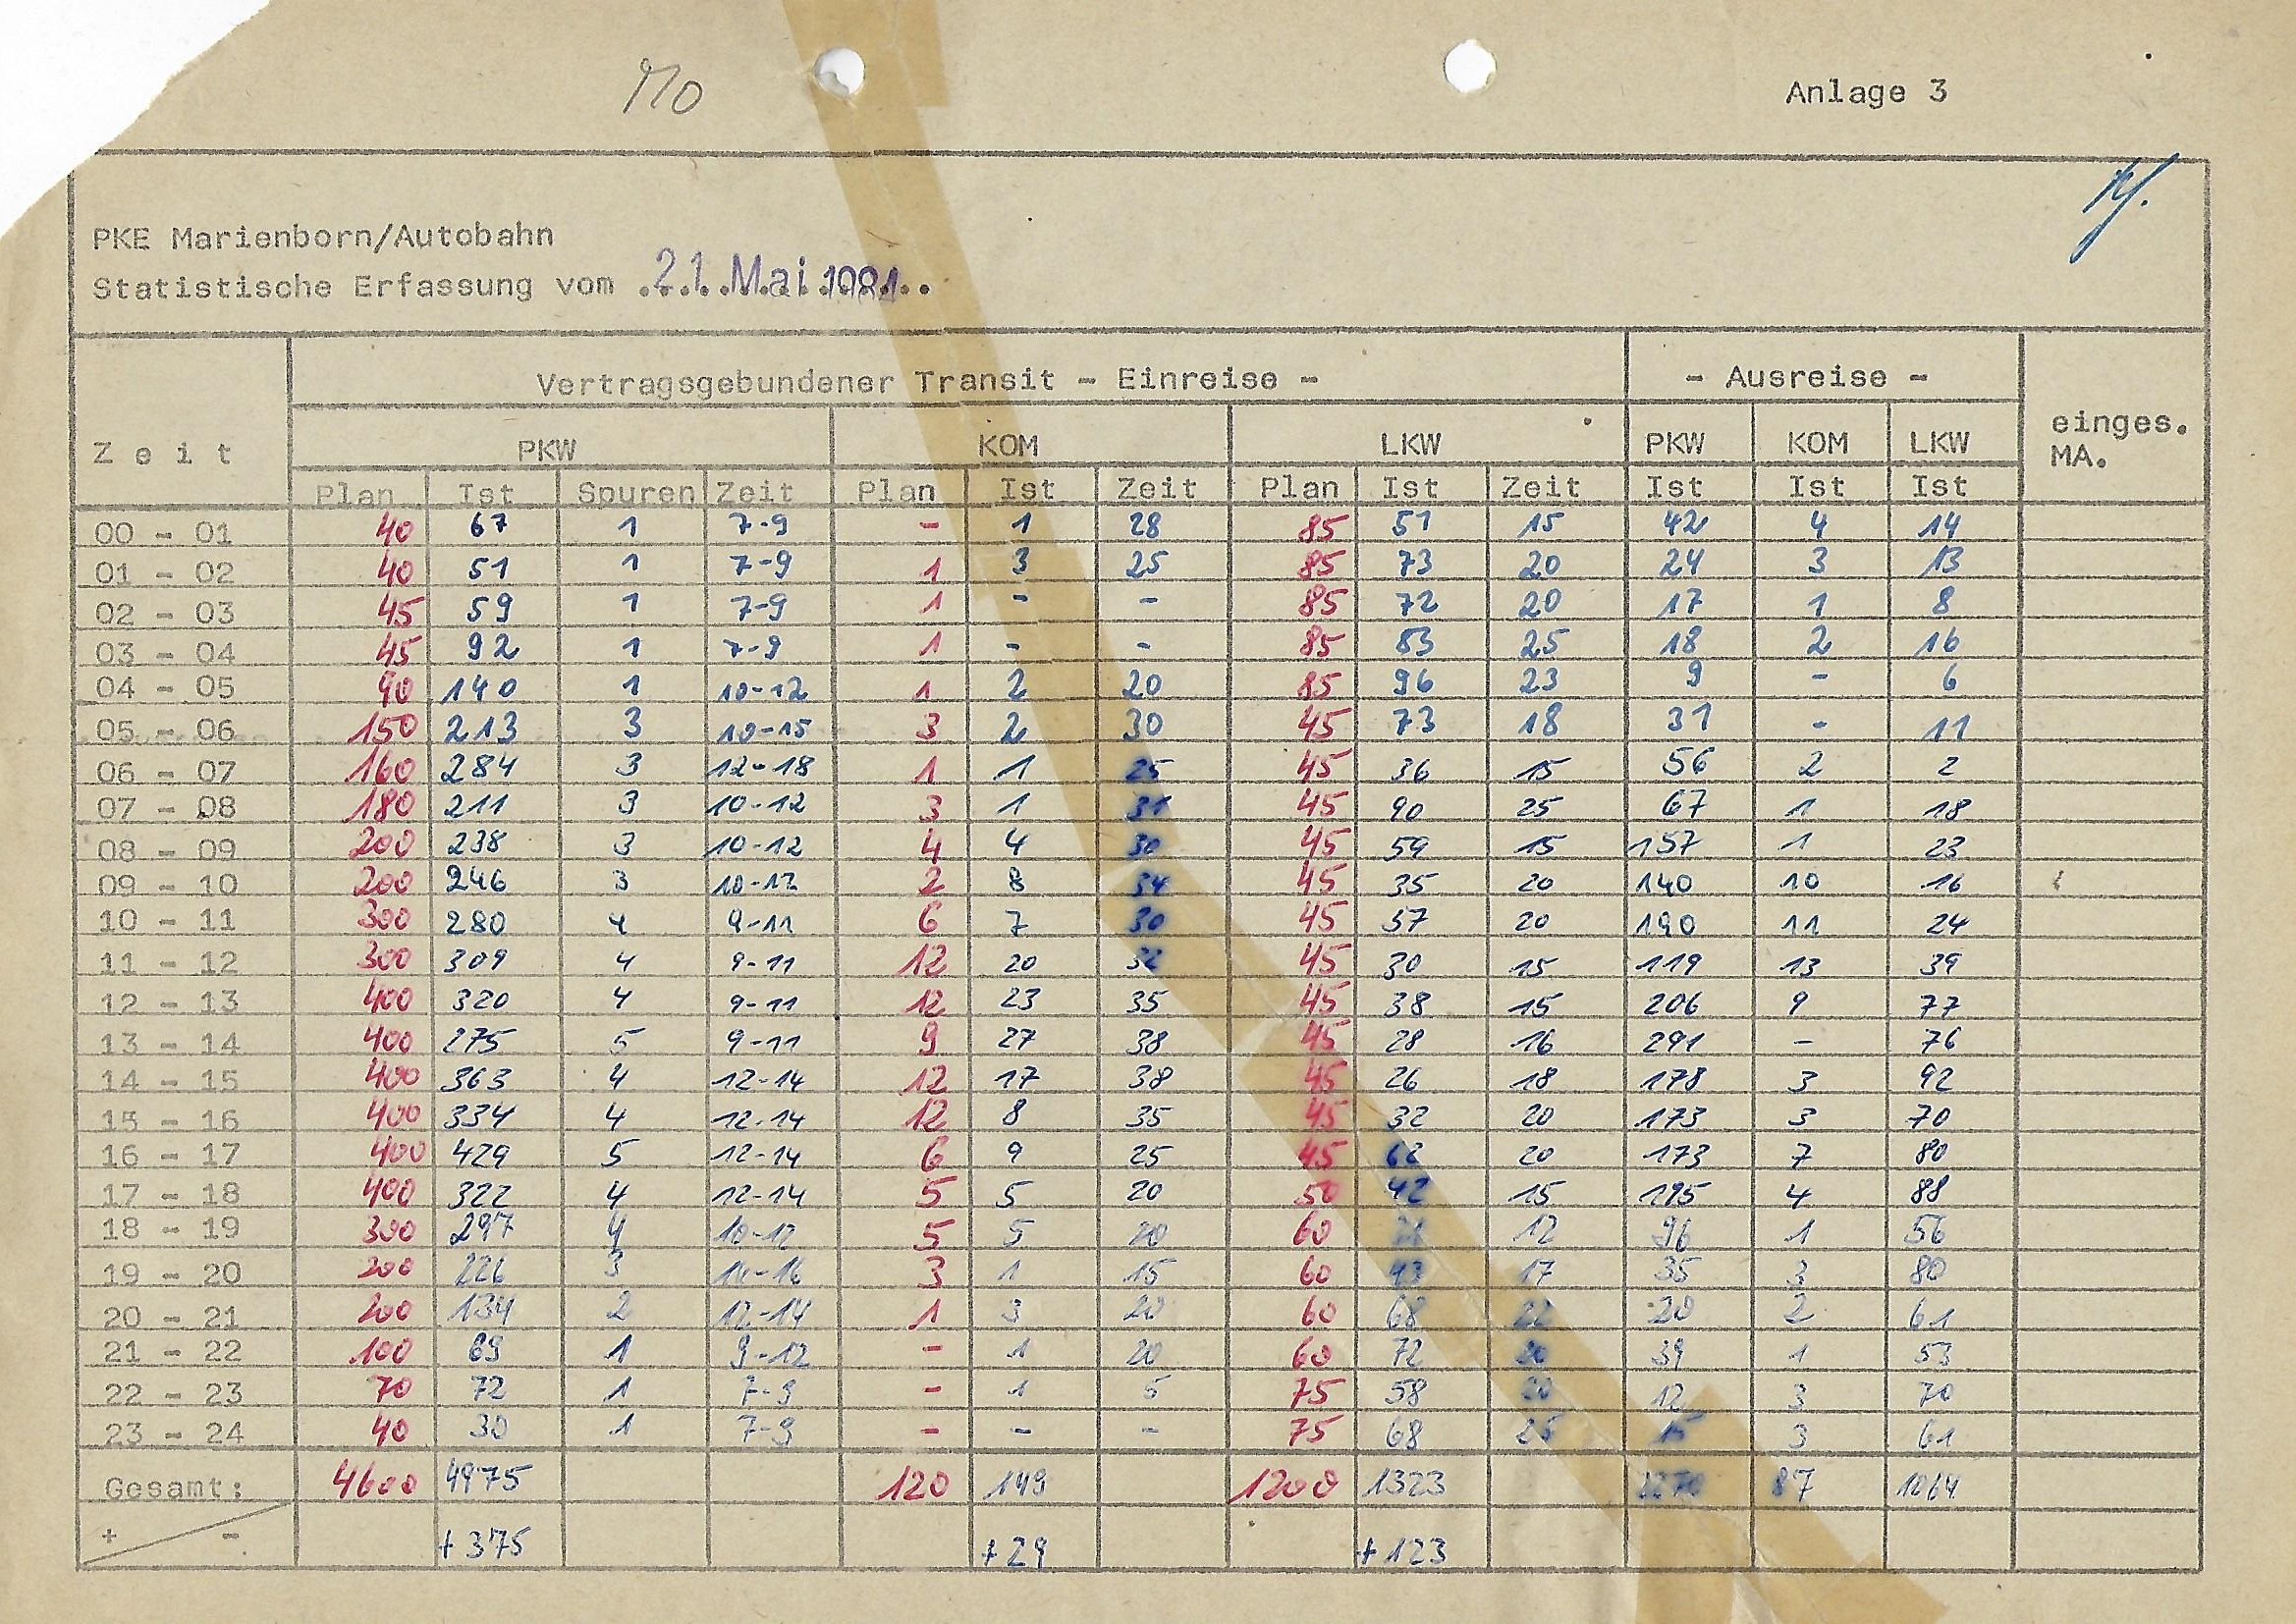 110
Anlage 3
PKE Marienborn/Autobahn
Statistische Erfassung vom .21. Mai 1981..
Zeit
Vertragsgebundener Transit - Einreise -
- Ausreise -
einges. MA.
PKW KOM LKW PKW KOM LKW
Plan Ist Spuren Zeit Plan Ist Zeit Plan Ist Zeit Ist Ist Ist
00 - 01 40 67 1 7-9 - 1 28 85 51 15 42 4 14
01 - 02 40 51 1 7-9 1 3 25 85 73 20 24 3 13
02 - 03 45 59 1 7-9 1 - - 85 72 20 17 1 8
03 - 04 45 92 1 7-9 1 - - 85 83 25 18 2 16
04 - 05 90 140 1 10-12 1 2 20 85 96 23 9 - 6
05 - 06 150 213 3 10-15 3 2 30 45 73 18 31 - 11
06 - 07 160 284 3 12-18 1 1 25 45 36 15 56 2 2
07 - 08 180 211 3 10-12 3 1 31 45 90 25 67 1 18
08 - 09 200 238 3 10-12 4 4 30 45 59 15 157 1 23
09 - 10 200 246 3 10-12 2 8 34 45 35 20 140 10 16
10 - 11 300 280 4 9-11 6 7 30 45 57 20 190 11 24
11 - 12 300 309 4 9-11 12 20 32 45 30 15 119 13 39
12 - 13 400 320 4 9-11 12 23 35 45 38 15 206 9 77
13 - 14 400 275 5 9-11 9 27 38 45 28 16 291 - 76
14 - 15 400 363 4 12-14 12 17 38 45 26 18 178 3 92
15 - 16 400 334 4 12-14 12 8 35 45 32 20 173 3 70
16 - 17 400 429 5 12-14 6 9 25 45 62 20 173 7 80
17 - 18 400 322 4 12-14 5 5 20 50 42 15 195 4 88
18 - 19 300 297 4 10-12 5 5 20 60 12 96 1 56
19 - 20 200 226 3 14-16 3 1 15 60 43 17 35 3 80
20 - 21 200 134 2 12-14 1 3 20 60 68 22 20 2 61
21 - 22 100 69 1 9-12 - 1 20 60 72 20 39 1 53
22 - 23 70 72 1 7-9 - 1 5 75 58 20 12 3 70
23 - 24 40 30 1 7-9 - - - 75 68 25 15 3 61
Gesamt: 4600 4975 120 149 1200 1323 87 1064
+ - +375 +29 +123